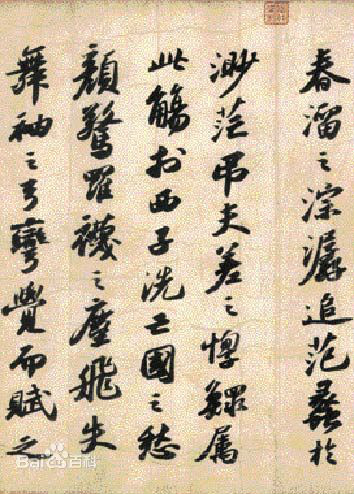 春溜之淙潺追范蠡於
渺茫吊夫差之惸鰥属
此觴於西子洗亡國之愁
顏驚羅襪之塵飛失
舞袖之弓彎覺而賦之
Baidu百科